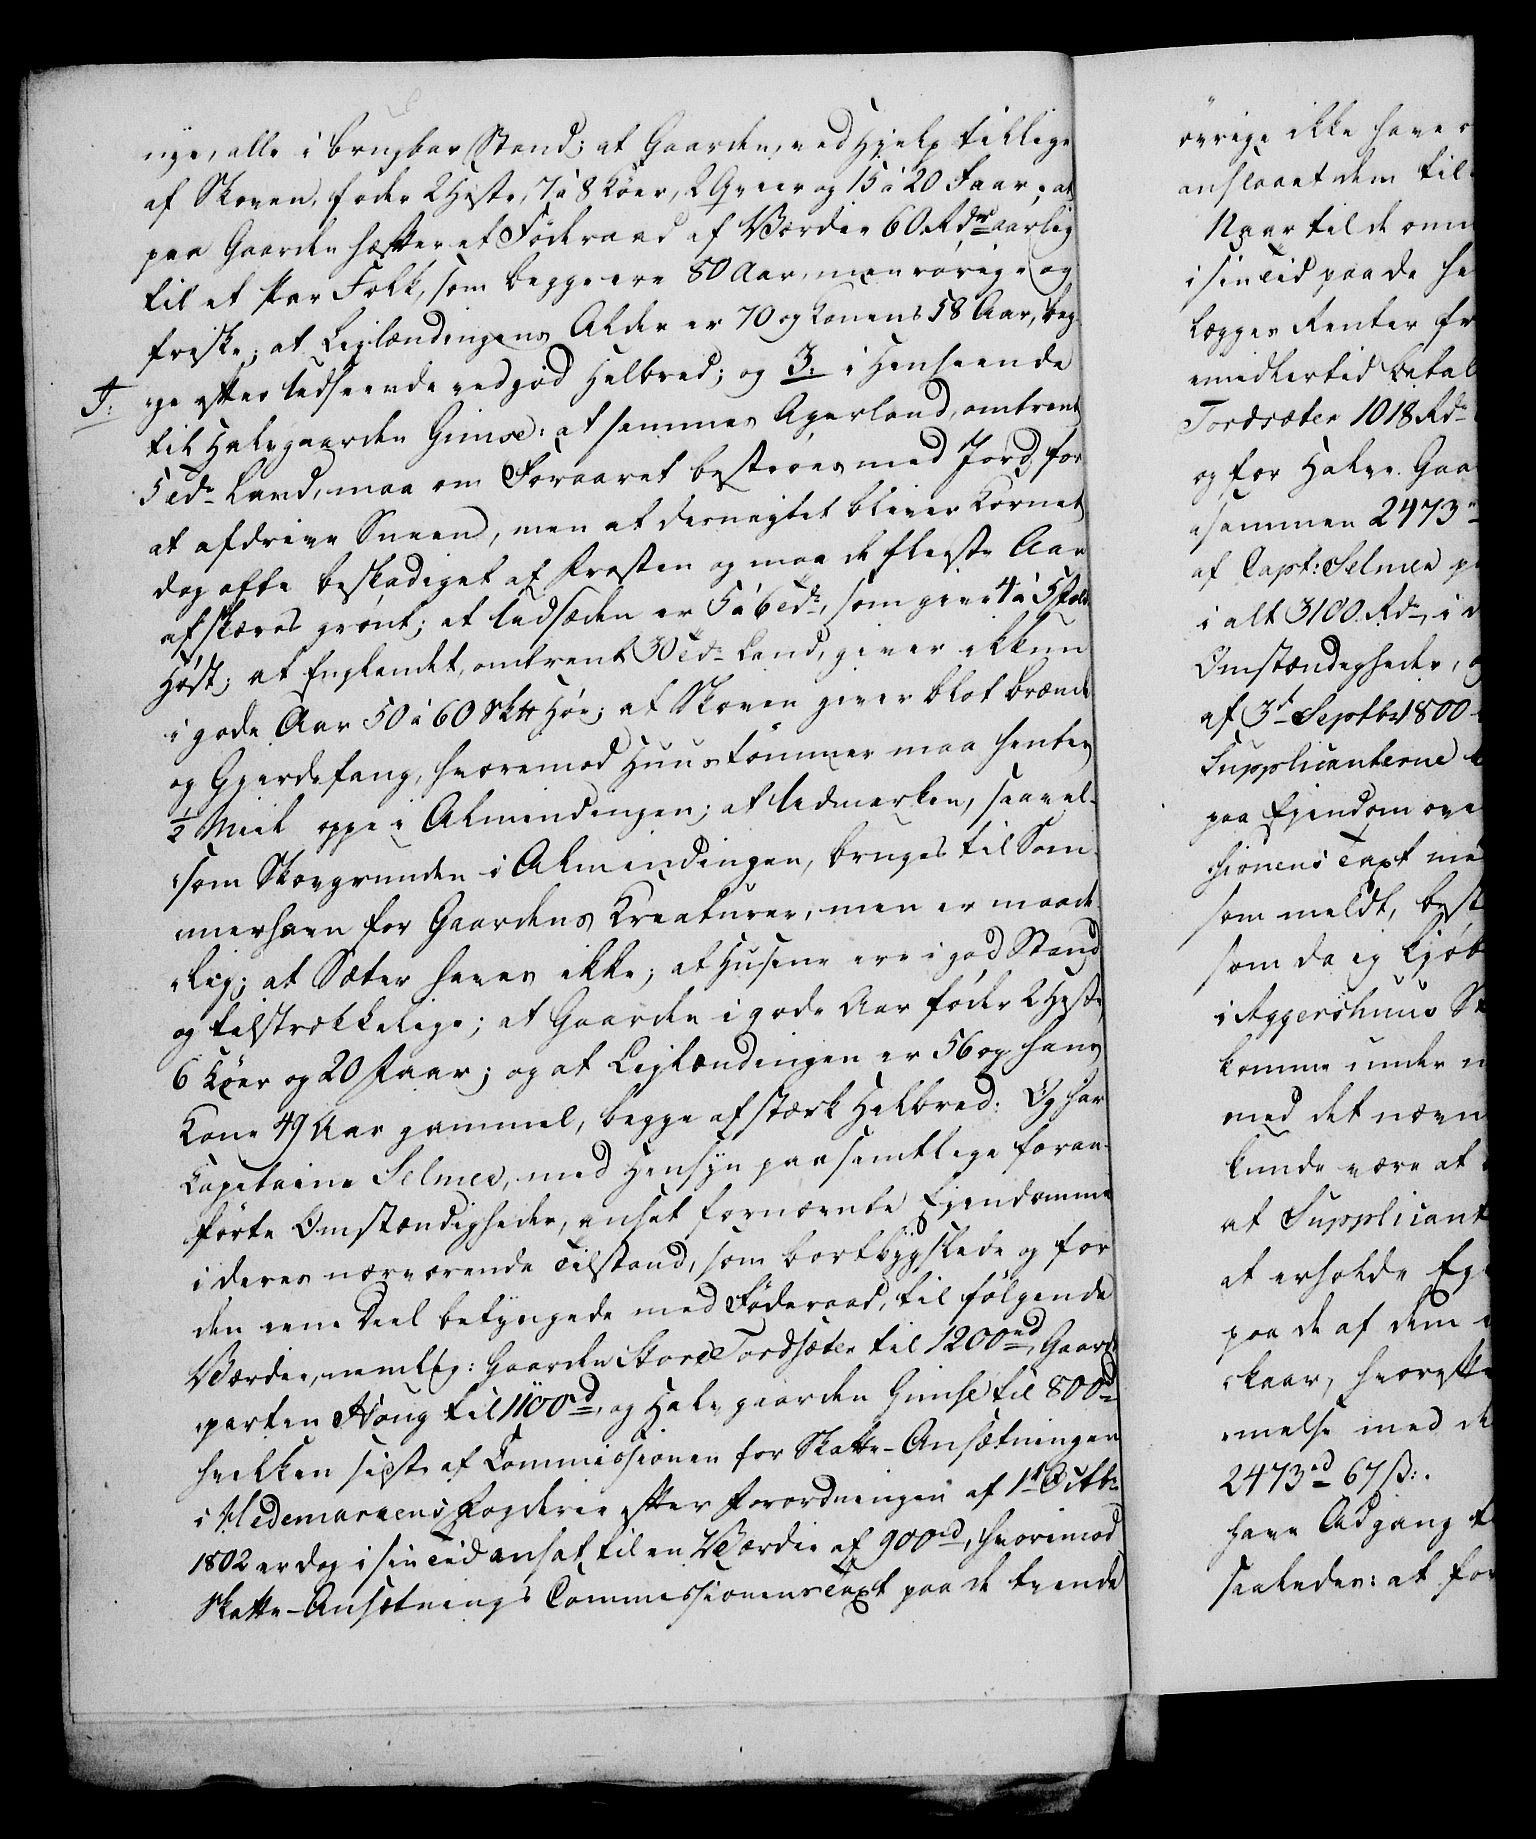 nye, alle i brugbar Stand; at Gaarden, ved Hjelp tillige
af Skoven, føder 2 Heste, 7 à 8 Køer, 2 Qvier og 15 à 20 Faar; at
paa Gaarden hæfter et Føderaad af Værdie 60 Rdr aarlig
til et Par Folk, som begge ere 80 Aar, men rørige og
friske; at Leilændingens Alder er 70 og Konens 58 Aar, beg-
ge efter Udseende ved god Helbred; og 3. i Henseende
til Halvgaarden Gimse: at sammes Agerland, omtrent
5 Tdr Land, maa om Foraaret bestrøes med Jord, for
at afdrive Sneen, men at desuagtet bliver Kornet
dog ofte beskadiget af Frosten og maa de fleeste Aar
afskæres grønt; at Udsæden er 5 à 6 Tdr, som giver 4 à 5 Fold
Høst; at Englandet, omtrent 30 Tdr Land, giver ikkun
i gode Aar 50 à 60 Sk℔ Høe; at Skoven giver blot Brænde
og Gjerdefang, hvoremod Huustømmer maa hentes
½ Miil oppe i Almindingen; at Udmarken, saavel-
som Skovgrunden i Almindingen, bruges til Som-
merhavn for Gaardens Kreaturer, men er maade-
lig; at Sæter haves ikke; at Husene ere i god Stand
og tilstrækkelige; at Gaarden i gode Aar føder 2 Heste
6 Køer og 20 Faar; og at Leilændingen er 56 og hans
Kone 49 Aar gammel, begge af stærk Helbred: Og har
Capitaine Selmer, med Hensyn paa samtlige foran-
førte Omstændigheder, anset fornævnte Ejendomme
i deres nærværende Tilstand, som bortbygslede og for
den eene Deel betyngede med Føderaad, til følgende
Værdie, nemlig: Gaarden Store Tordsæter til 1200 rd, Gaard-
parten Houg til 1100 rd, og Halvgaarden Gimse til 800 rd
hvilken sidste af Commissionen for Skatte-Ansætningen
i Hedemarkens Fogderie efter Forordningen af 1t Octbr
1802 er dog i sin Tid ansat til en Værdie af 900 rd, hvorimod
Skatte-Ansætnings Commissionens Taxt paa de tvende
øvrige ikke haver
anslaaet dem til
Naar til de om
i sin Tid paa de he
lægges Renter fr
imidlertid betal
Tordsæter 1018 Rdr
og for Halve Gaa
sammen 2473
af Capt: Selmer p
i alt 3100 Rdr, i
Omstændigheder,
af 3t Septbr 1800
Supplicanterne
paa Ejendom ove
sionens Taxt me
som meldt, best
som da ej Kjøb
i Aggershuus St
komme under
med det nævn
kunde være at
at Supplicant
at erholde Ej
paa de af dem
kaar, hvorefte
melse med de
2473 rd 67 ß:.
have Adgang t
saaledes: at for